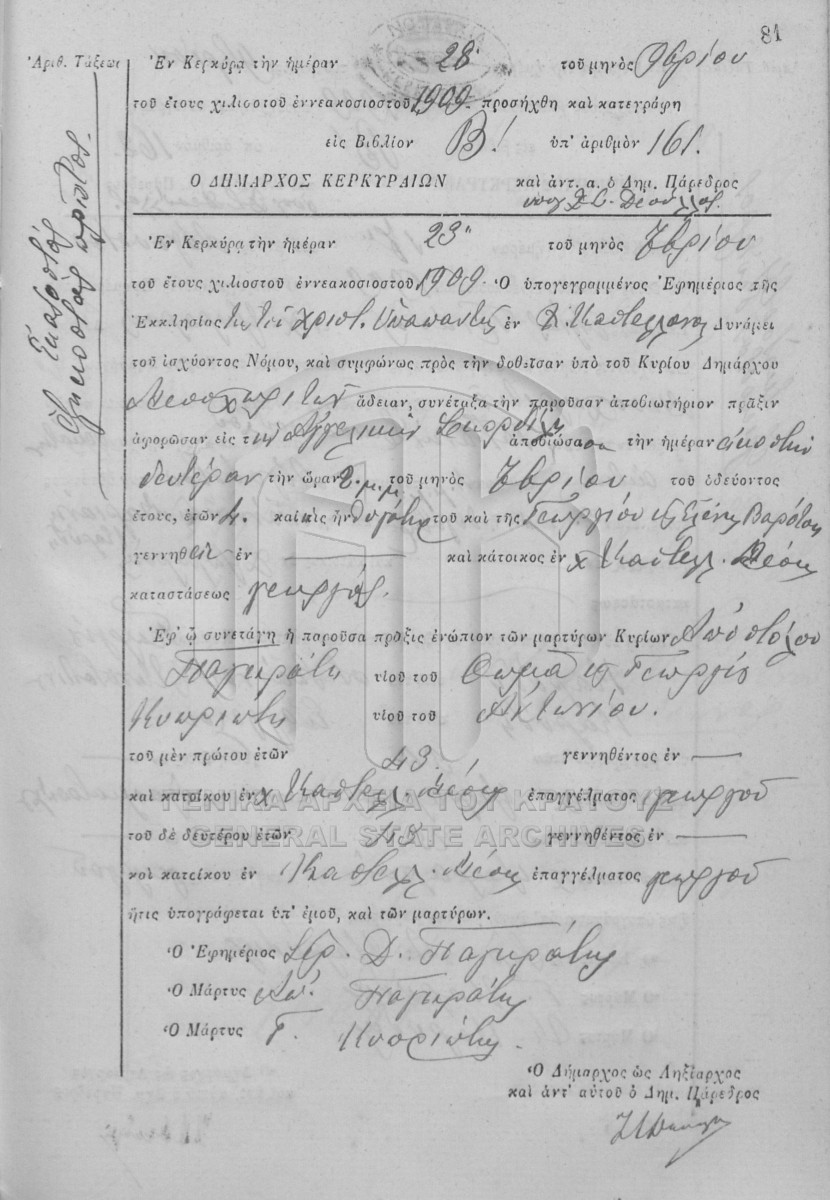 81
Ἀριθ. Τάξεως
Ἑκατοστός
ἑξηκοστὸς πρῶτος.
Ἐν Κερκύρᾳ τὴν ἡμέραν 28 τοῦ μηνὸς 9βρίου
τοῦ ἔτους χιλιοστοῦ ἐννεακοσιοστοῦ 1909 προσήχθη καὶ κατεγράφη
εἰς Βιβλίον Β! ὑπ' ἀριθμὸν 161.
Ὁ ΔΗΜΑΡΧΟΣ ΚΕΡΚΥΡΑΙΩΝ καὶ ἀντ. α. ὁ Δημ. Πάρεδρος
Ἐν Κερκύρᾳ τὴν ἡμέραν 23 τοῦ μηνὸς 9βρίου
τοῦ ἔτους χιλιοστοῦ ἐννεακοσιοστοῦ 1909. Ὁ ὑπογεγραμμένος Ἐφημέριος τῆς
Ἐκκλησίας τῆς τοῦ Χριστ. Ὑπαπαντῆς ἐν Χ. Καστελλάνοι Δυνάμει
τοῦ ἰσχύοντος Νόμου, καὶ συμφώνως πρὸς τὴν δοθεῖσαν ὑπὸ τοῦ Κυρίου Δημάρχου
Μεσοχωριτῶν ἄδειαν, συνέταξα τὴν παροῦσαν ἀποβιωτήριον πρᾶξιν
ἀφορῶσαν εἰς τὴν Ἀγγελικὴν ἀποβιώσασα τὴν ἡμέραν εἰκοστὴν
δευτέραν τὴν ὥραν μ.μ. τοῦ μηνὸς 9βρίου τοῦ ὁδεύοντος
ἔτους, ἐτῶν 4. καὶ ἥτις ἦν θυγάτηρ τοῦ καὶ τῆς Γεωργίου κ Ἑλένης Βαρότση
γεννηθεῖσα ἐν — καὶ κάτοικος ἐν Χ Καστελλ. Μέση
καταστάσεως γεωργός.
Ἐφ' ᾧ συνετάγη ἡ παροῦσα πρᾶξις ἐνώπιον τῶν μαρτύρων Κυρίων Ἀποστόλου
Παγκράτη υἱοῦ τοῦ Θωμᾶ κ Γεωργίου
Κυπριώτη υἱοῦ τοῦ Ἀντωνίου.
τοῦ μὲν πρώτου ἐτῶν 43 γεννηθέντος ἐν —
καὶ κατοίκου ἐν Χ Καστελλ. Μέση ἐπαγγέλματος γεωργοῦ
ΓΕΝΙΚΑ ΑΡΧΕΙΑ ΤΟΥ ΚΡΑΤΟΥΣ
τοῦ δὲ δευτέρου ἐτῶν 48 γεννηθέντος ἐν —
GENERAL STATE ARCHIVES
καὶ κατοίκου ἐν Καστελλ. Μέση ἐπαγγέλματος γεωργοῦ
ἥτις ὑπογράφεται ὑπ' ἐμοῦ, καὶ τῶν μαρτύρων.
Ὁ Ἐφημέριος Ἱερ. Δ. Παγκράτης
Ὁ Μάρτυς Ἀπ. Παγκράτης
Ὁ Μάρτυς Γ. Κυπριώτης
Ὁ Δήμαρχος ὡς Ληξίαρχος
καὶ ἀντ' αὐτοῦ ὁ Δημ. Πάρεδρος